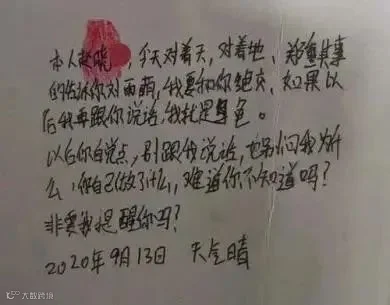 本人赵晓，今天对着天，对着地、郑重其事
的告诉你对雨萌，我要和你绝交，如果以
后我再跟你说话，我就是色。
以后你自觉点，别跟我说话，也别问我为什
么，你自己做了什么，难道你不知道吗？
非要我提醒你吗？
2020年9月13日 天气晴
大数跨境